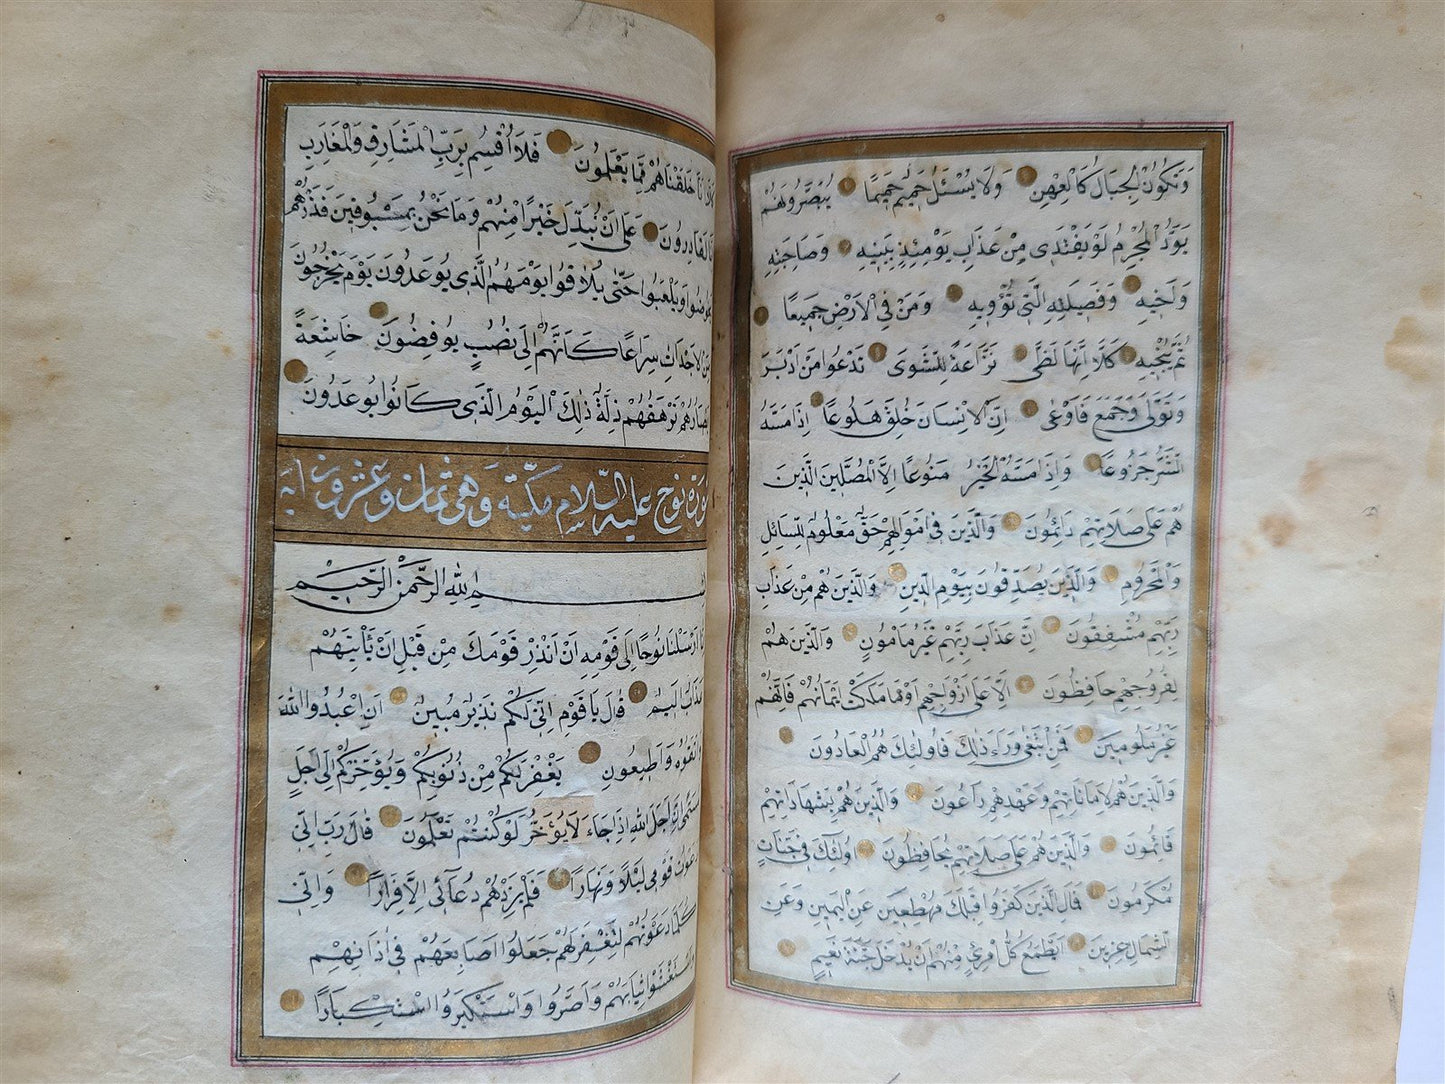 وَتَكُونُ الْجِبَالُ كَالْعِهْنِ وَلَا يَسْئَلُ حَمِيمٌ حَمِيمًا يُبَصَّرُونَهُمْ
يَوَدُّ الْمُجْرِمُ لَوْ يَفْتَدِى مِنْ عَذَابِ يَوْمِئِذٍ بِبَنِيهِ وَصَاحِبَتِهِ
وَاَخِيهِ وَفَصِيلَتِهِ الَّتِى تُؤْوِيهِ وَمَنْ فِى الْاَرْضِ جَمِيعًا
ثُمَّ يُنْجِيهِ كَلَّا اِنَّهَا لَظَى نَزَّاعَةً لِلشَّوَى تَدْعُوا مَنْ اَدْبَرَ
وَتَوَلَّى وَجَمَعَ فَاَوْعَى اِنَّ الْاِنْسَانَ خُلِقَ هَلُوعًا اِذَا مَسَّهُ
الشَّرُّ جَزُوعًا وَاِذَا مَسَّهُ الْخَيْرُ مَنُوعًا اِلَّا الْمُصَلِّينَ الَّذِينَ
هُمْ عَلَى صَلَاتِهِمْ دَائِمُونَ وَالَّذِينَ فِى اَمْوَالِهِمْ حَقٌّ مَعْلُومٌ لِلسَّائِلِ
وَالْمَحْرُومِ وَالَّذِينَ يُصَدِّقُونَ بِيَوْمِ الدِّينِ وَالَّذِينَ هُمْ مِنْ عَذَابِ
رَبِّهِمْ مُشْفِقُونَ اِنَّ عَذَابَ رَبِّهِمْ غَيْرُ مَاْمُونٍ وَالَّذِينَ هُمْ
لِفُرُوجِهِمْ حَافِظُونَ اِلَّا عَلَى اَزْوَاجِهِمْ اَوْ مَا مَلَكَتْ اَيْمَانُهُمْ فَاِنَّهُمْ
غَيْرُ مَلُومِينَ فَمَنِ ابْتَغَى وَرَاءَ ذَلِكَ فَاُولَئِكَ هُمُ الْعَادُونَ
وَالَّذِينَ هُمْ لِاَمَانَاتِهِمْ وَعَهْدِهِمْ رَاعُونَ وَالَّذِينَ هُمْ بِشَهَادَاتِهِمْ
قَائِمُونَ وَالَّذِينَ هُمْ عَلَى صَلَاتِهِمْ يُحَافِظُونَ اُولَئِكَ فِى جَنَّاتٍ
مُكْرَمُونَ فَمَالِ الَّذِينَ كَفَرُوا قِبَلَكَ مُهْطِعِينَ عَنِ الْيَمِينِ وَعَنِ
الشِّمَالِ عِزِينَ اَيَطْمَعُ كُلُّ امْرِئٍ مِنْهُمْ اَنْ يُدْخَلَ جَنَّةَ نَعِيمٍ
خَلَقْنَاهُمْ مِمَّا يَعْلَمُونَ فَلَا اُقْسِمُ بِرَبِّ الْمَشَارِقِ وَالْمَغَارِبِ
لَقَادِرُونَ عَلَى اَنْ نُبَدِّلَ خَيْرًا مِنْهُمْ وَمَا نَحْنُ بِمَسْبُوقِينَ فَذَرْهُمْ
يَخُوضُوا وَيَلْعَبُوا حَتَّى يُلَاقُوا يَوْمَهُمُ الَّذِى يُوعَدُونَ يَوْمَ يَخْرُجُونَ
مِنَ الْاَجْدَاثِ سِرَاعًا كَاَنَّهُمْ اِلَى نُصُبٍ يُوفِضُونَ خَاشِعَةً
اَبْصَارُهُمْ تَرْهَقُهُمْ ذِلَّةٌ ذَلِكَ الْيَوْمُ الَّذِى كَانُوا يُوعَدُونَ
سورة نوح عليه السلام مكية وهى ثمان وعشرون اية
اللهِ الرَّحْمَنِ الرَّحِيمِ
اَرْسَلْنَا نُوحًا اِلَى قَوْمِهِ اَنْ اَنْذِرْ قَوْمَكَ مِنْ قَبْلِ اَنْ يَاْتِيَهُمْ
عَذَابٌ اَلِيمٌ قَالَ يَا قَوْمِ اِنِّى لَكُمْ نَذِيرٌ مُبِينٌ اَنِ اعْبُدُوا اللهَ
وَاتَّقُوهُ وَاَطِيعُونِ يَغْفِرْ لَكُمْ مِنْ ذُنُوبِكُمْ وَيُؤَخِّرْكُمْ اِلَى اَجَلٍ
مُسَمًّى اِنَّ اَجَلَ اللهِ اِذَا جَاءَ لَا يُؤَخَّرُ لَوْ كُنْتُمْ تَعْلَمُونَ قَالَ رَبِّ اِنِّى
دَعَوْتُ قَوْمِى لَيْلًا وَنَهَارًا فَلَمْ يَزِدْهُمْ دُعَائِى اِلَّا فِرَارًا وَاِنِّى
كُلَّمَا دَعَوْتُهُمْ لِتَغْفِرَ لَهُمْ جَعَلُوا اَصَابِعَهُمْ فِى اٰذَانِهِمْ
وَاسْتَغْشَوْا ثِيَابَهُمْ وَاَصَرُّوا وَاسْتَكْبَرُوا اسْتِكْبَارًا